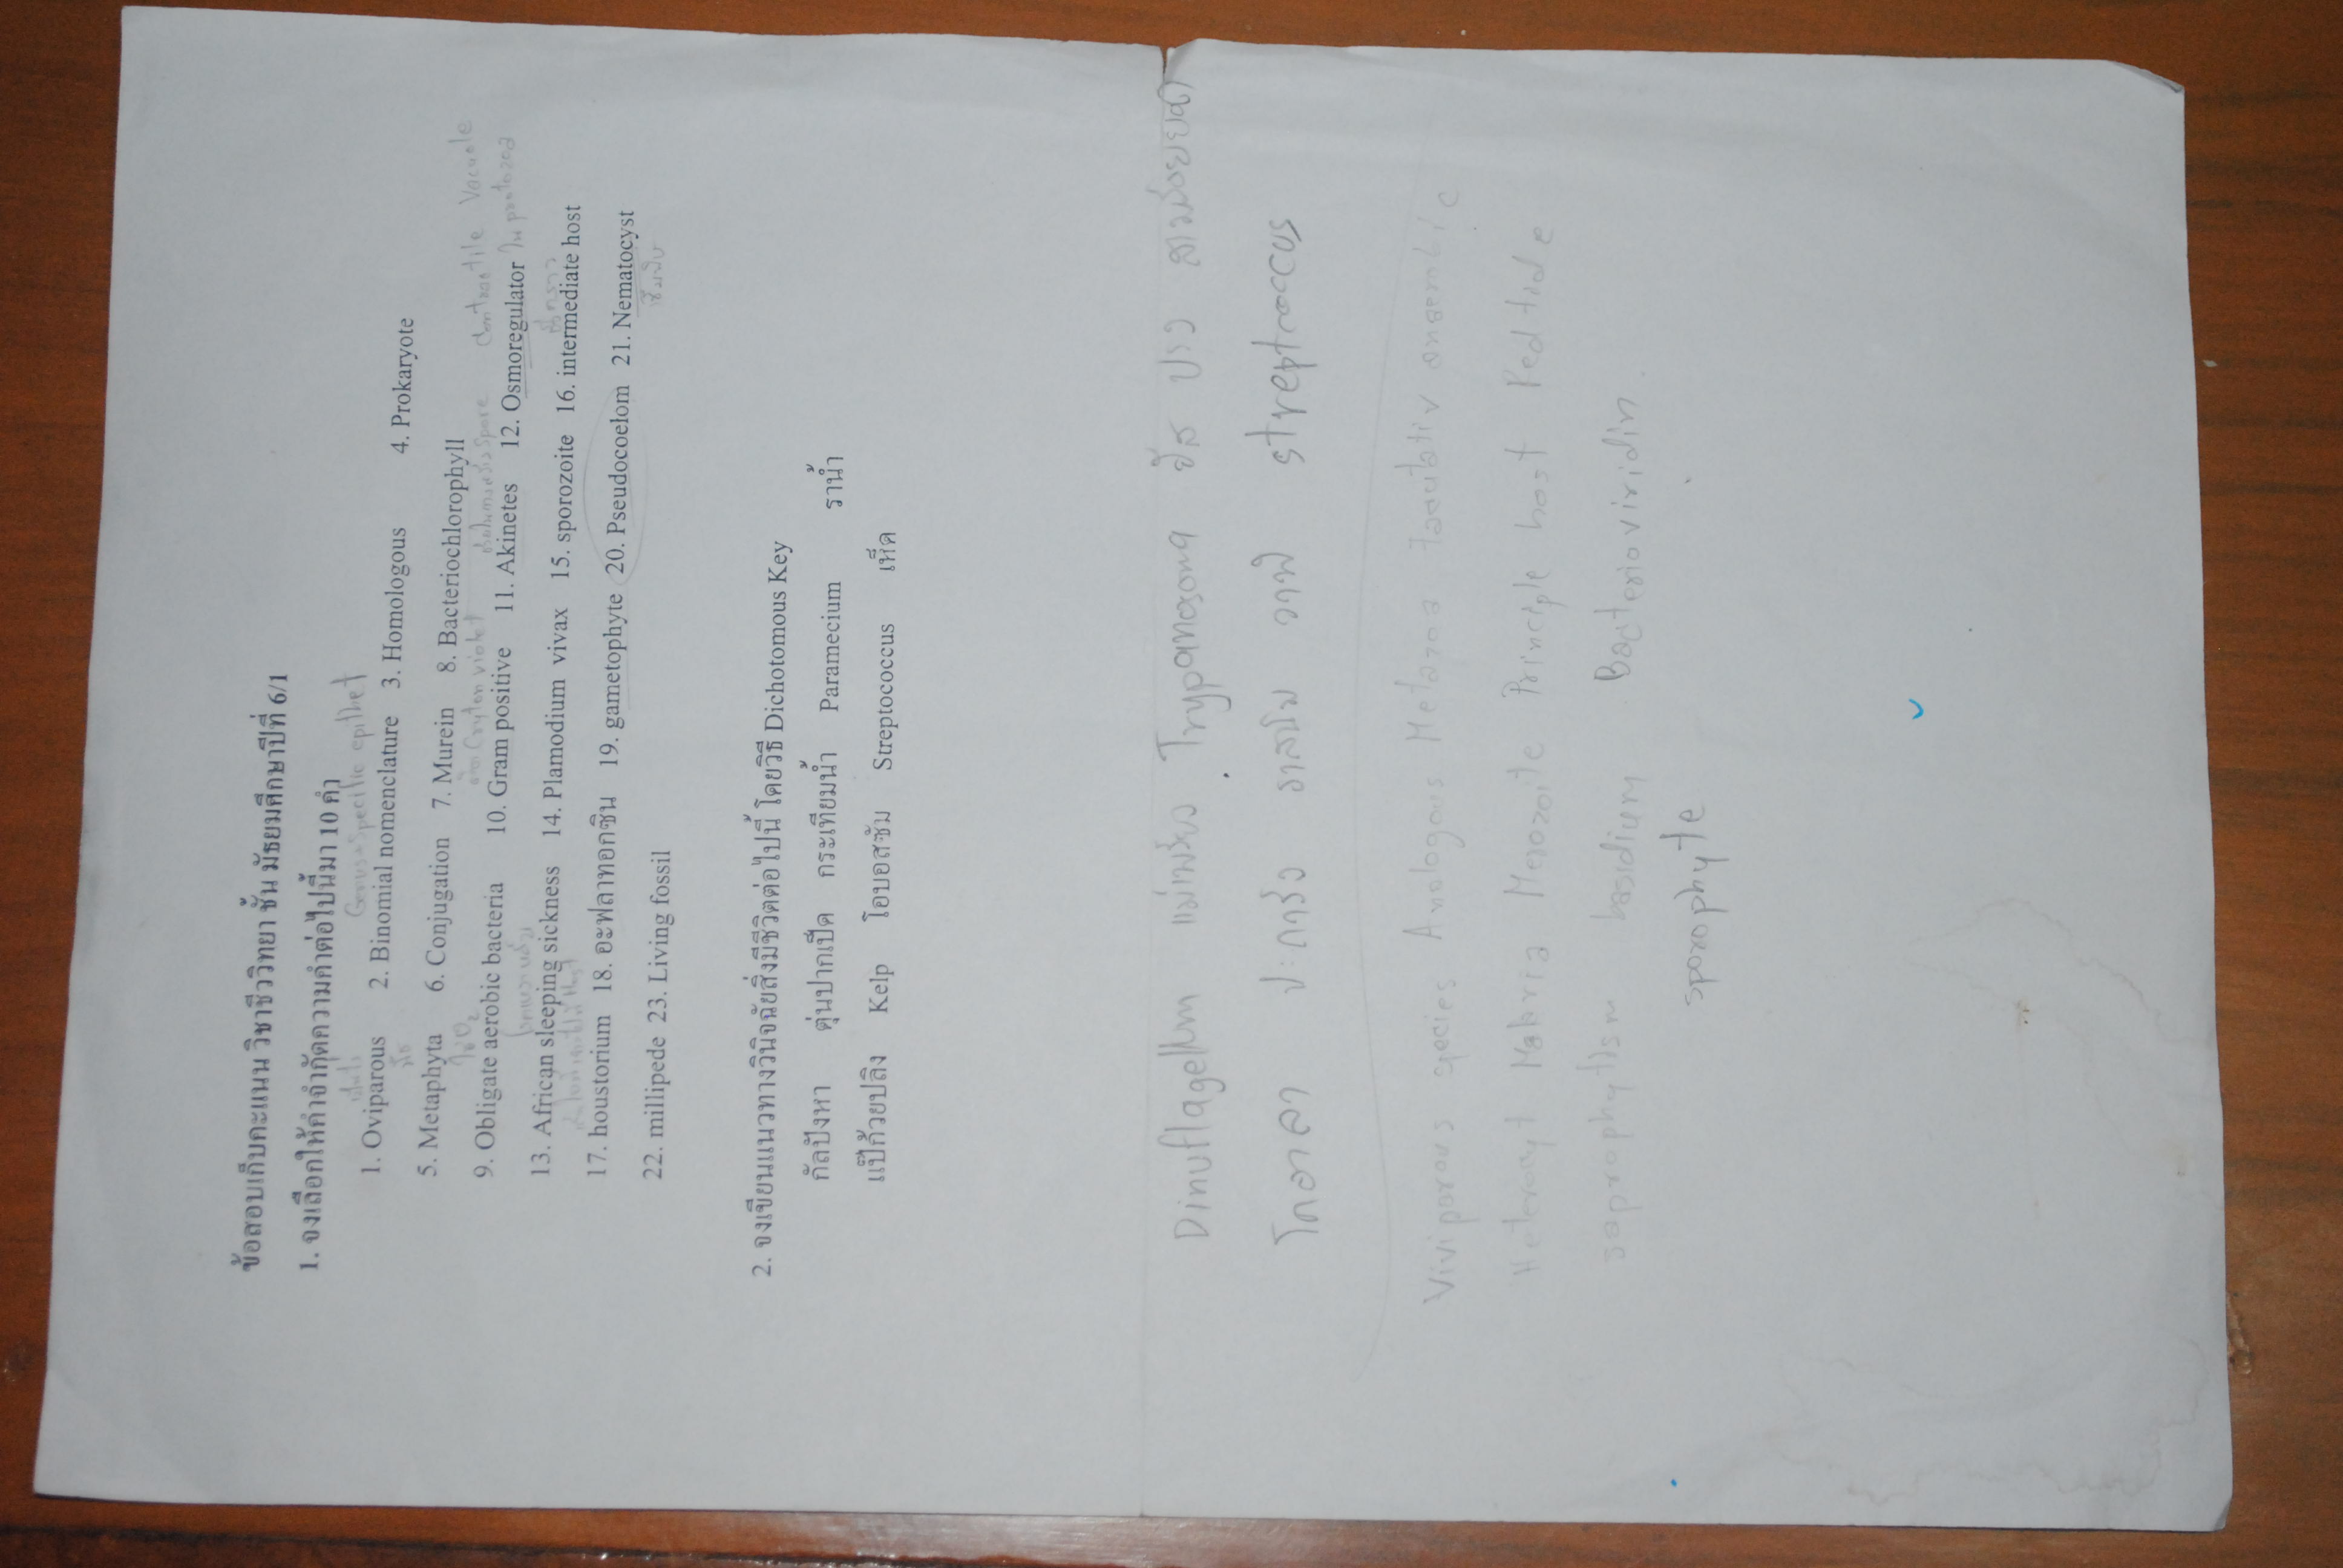 ข้อสอบเก็บคะแนน วิชาชีววิทยา ชั้น มัธยมศึกษาปีที่ 6/1
1. จงเลือกให้คำจำกัดความคำต่อไปนี้มา 10 คำ
Genus + Specific epithet
1. Oviparous 2. Binomial nomenclature 3. Homologous 4. Prokaryote
พืช
5. Metaphyta 6. Conjugation 7. Murein 8. Bacteriochlorophyll
ใช้ O2 violet spore contractile Vacuole
9. Obligate aerobic bacteria 10. Gram positive 11. Akinetes 12. Osmoregulator ใน
13. African sleeping sickness 14. Plamodium vivax 15. sporozoite 16. intermediate host
17. houstorium 18. อะฟลาทอกซิน 19. gametophyte 20. Pseudocoelom 21. Nematocyst
เข็มพิษ
22. millipede 23. Living fossil
2. จงเขียนแนวทางวินิจฉัยสิ่งมีชีวิตต่อไปนี้ โดยวิธี Dichotomous Key
กัลปังหา ตุ่นปากเป็ด กระเทียมน้ำ Paramecium ราน้ำ
แป๊ก้วยปลิง Kelp โอบอสซัม Streptococcus เห็ด
Dinuflagellum แม่เพรียง Trypanosoma
โคอาลา ปะการัง วาฬ streptroccus
Viviporous species Anologous Metazoa
Merozoite Principle host
saprophytism basidium Bacterioviridin
sporophyte